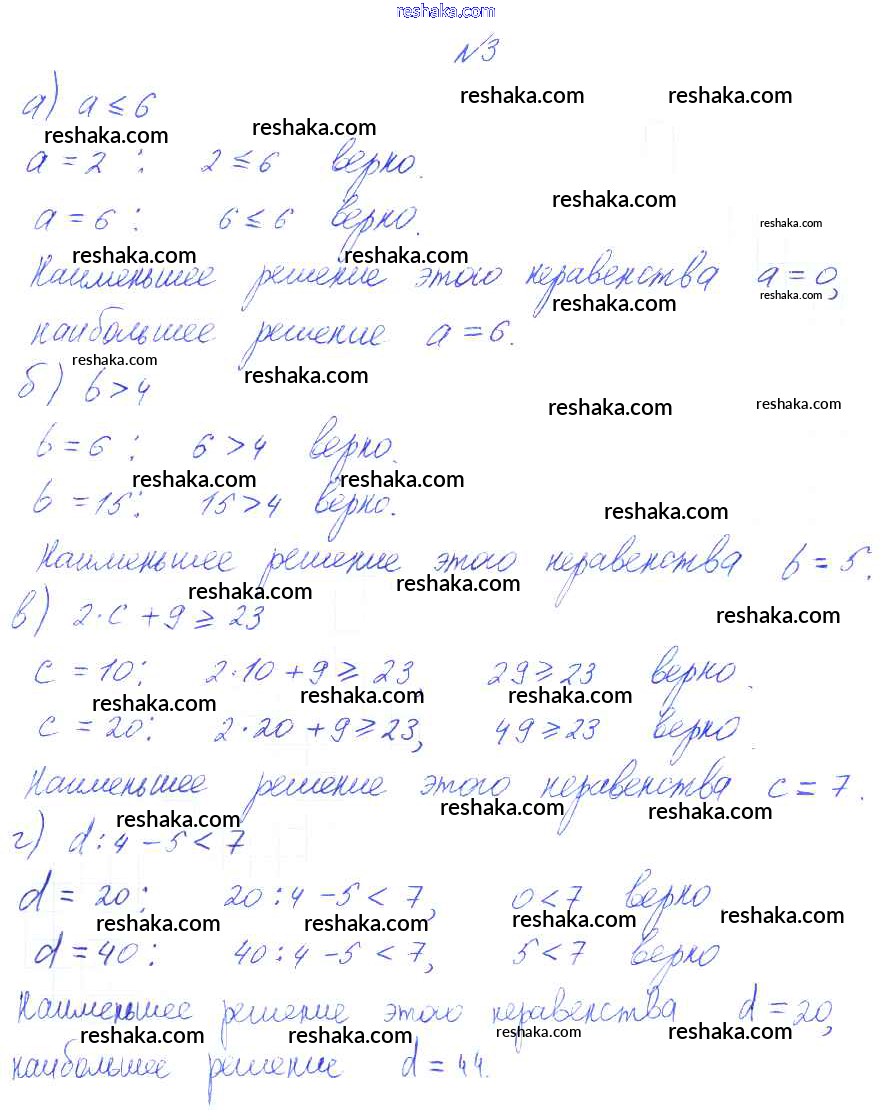 reshaka.com
№3
а) a ≤ 6
reshaka.com reshaka.com
reshaka.com reshaka.com
a = 2 : 2 ≤ 6 верно.
reshaka.com
a = 6 : 6 ≤ 6 верно.
reshaka.com
reshaka.com reshaka.com
Наименьшее решение этого неравенства a = 0,
reshaka.com reshaka.com
наибольшее решение a = 6.
reshaka.com reshaka.com
б) b > 4
reshaka.com reshaka.com
b = 6 : 6 > 4 верно.
reshaka.com reshaka.com
b = 15: 15 > 4 верно.
reshaka.com
Наименьшее решение этого неравенства b = 5.
reshaka.com reshaka.com
в) 2·c + 9 ≥ 23
reshaka.com
c = 10: 2·10 + 9 ≥ 23, 29 ≥ 23 верно.
reshaka.com reshaka.com reshaka.com
c = 20: 2·20 + 9 ≥ 23, 49 ≥ 23 верно
Наименьшее решение этого неравенства c = 7.
reshaka.com reshaka.com reshaka.com
г) d : 4 – 5 < 7
d = 20: 20 : 4 – 5 < 7, 0 < 7 верно
reshaka.com reshaka.com reshaka.com reshaka.com
d = 40: 40 : 4 – 5 < 7, 5 < 7 верно
Наименьшее решение этого неравенства d = 20,
reshaka.com reshaka.com reshaka.com reshaka.com
наибольшее решение d = 44.